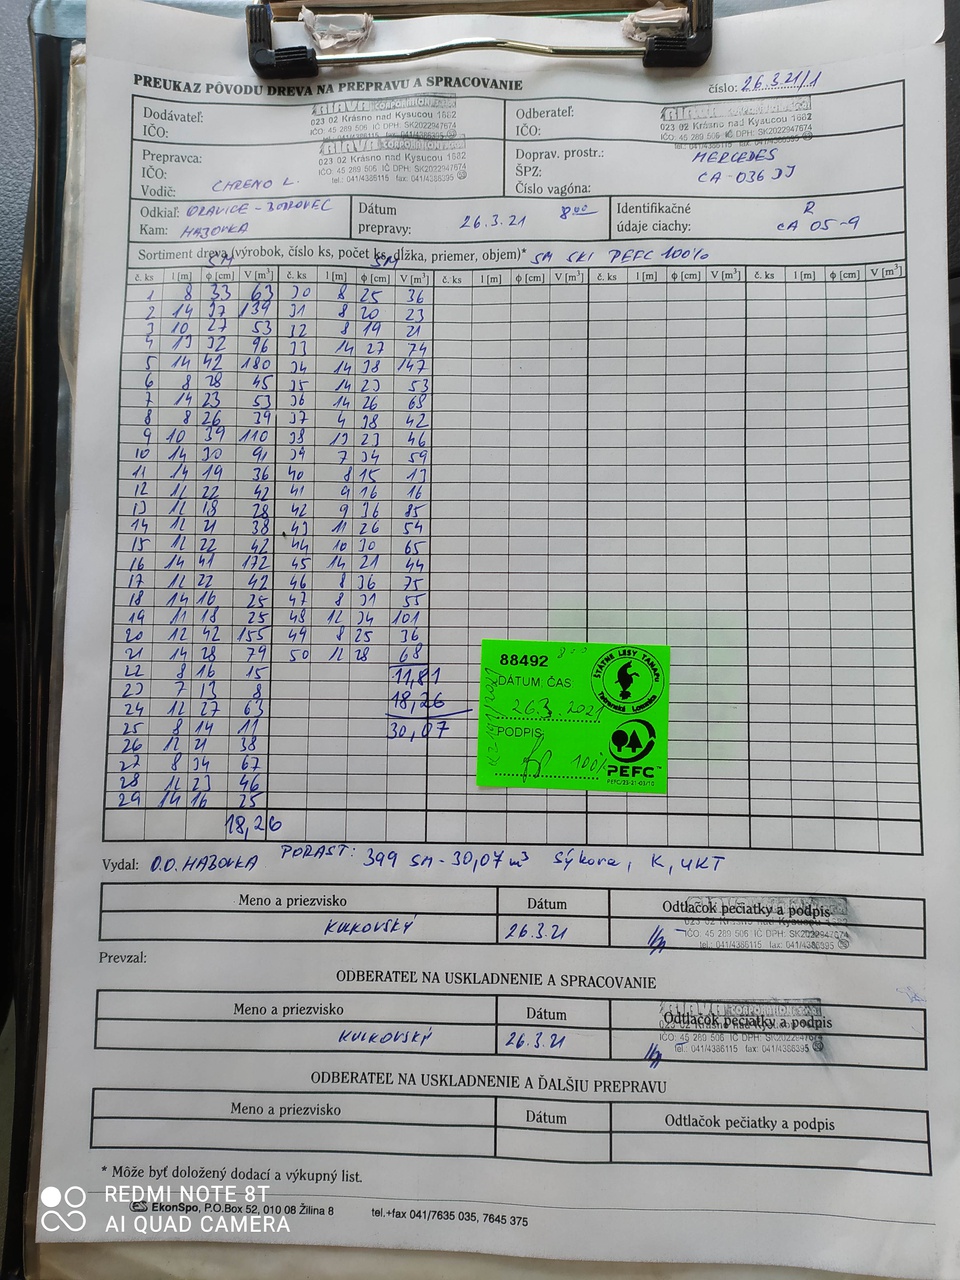 PREUKAZ PÔVODU DREVA NA PREPRAVU A SPRACOVANIE
číslo: 26.3.21/1
Dodávateľ:
IČO:
CORPORATION
023 02 Krásno nad Kysucou 1682
IČO: 45 289 506 IČ DPH: SK2022947674
tel.: 041/4386115 fax: 041/4386395
Odberateľ:
IČO:
CORPORATION
023 02 Krásno nad Kysucou 1682
IČO: 45 289 506 IČ DPH: SK2022947674
tel.: 041/4386115 fax: 041/4386395
Prepravca:
IČO:
Vodič: CHRENO L.
CORPORATION
023 02 Krásno nad Kysucou 1682
IČO: 45 289 506 IČ DPH: SK2022947674
tel.: 041/4386115 fax: 041/4386395
Doprav. prostr.: MERCEDES
ŠPZ: CA-036DJ
Číslo vagóna:
Odkiaľ: ORAVICE - BOROVEC
Kam: HABOVKA
Dátum
prepravy: 26.3.21 8 00
Identifikačné
údaje ciachy: R
CA 05-9
Sortiment dreva (výrobok, číslo ks, počet ks, dĺžka, priemer, objem)* SM SKI PEFC 100%
SM SM
č. ks l [m] φ [cm] V [m³] č. ks l [m] φ [cm] V [m³] č. ks l [m] φ [cm] V [m³] č. ks l [m] φ [cm] V [m³] č. ks l [m] φ [cm] V [m³]
1 8 33 63 30 8 25 36
2 14 37 139 31 8 20 23
3 10 27 53 32 8 19 21
4 13 32 96 33 14 27 74
5 14 42 180 34 14 38 147
6 8 28 45 35 14 23 53
7 14 23 53 36 14 26 68
8 8 26 39 37 4 38 42
9 10 39 110 38 13 23 46
10 14 30 91 39 7 34 59
11 14 19 36 40 8 15 13
12 12 22 42 41 9 16 16
13 12 18 28 42 9 36 85
14 12 21 38 43 11 26 54
15 12 22 42 44 10 30 65
16 14 41 172 45 14 21 44
17 12 22 42 46 8 36 75
18 14 16 25 47 8 31 55
19 11 18 25 48 12 34 101
20 12 42 155 49 8 25 36
21 14 28 79 50 12 28 68
22 8 16 15 11,81
23 7 13 8 18,26
24 12 27 63 30,07
25 8 14 11
26 12 21 38
27 8 34 67
28 12 23 46
29 14 16 25
18,26
88492 8 00
DÁTUM, ČAS:
26.3 2021
PODPIS:
100%
ŠTÁTNE LESY TANAPU
Tatranská Lomnica
PEFC™
PEFC/23-21-03/10
Vydal: O.O. HABOVKA PORAST: 399 SM - 30,07 m³ Sýkora, K, UKT
Meno a priezvisko Dátum Odtlačok pečiatky a podpis
KULKOVSKÝ 26.3.21
023 02 Krásno nad Kysucou 1682
IČO: 45 289 506 IČ DPH: SK2022947674
tel.: 041/4386115 fax: 041/4386395
Prevzal:
ODBERATEĽ NA USKLADNENIE A SPRACOVANIE
Meno a priezvisko Dátum Odtlačok pečiatky a podpis
KULKOVSKÝ 26.3.21
CORPORATION
023 02 Krásno nad Kysucou 1682
IČO: 45 289 506 IČ DPH: SK2022947674
tel.: 041/4386115 fax: 041/4386395
ODBERATEĽ NA USKLADNENIE A ĎALŠIU PREPRAVU
Meno a priezvisko Dátum Odtlačok pečiatky a podpis
* Môže byť doložený dodací a výkupný list.
EkonSpo, P.O.Box 52, 010 08 Žilina 8 tel.+fax 041/7635 035, 7645 375
REDMI NOTE 8T
AI QUAD CAMERA